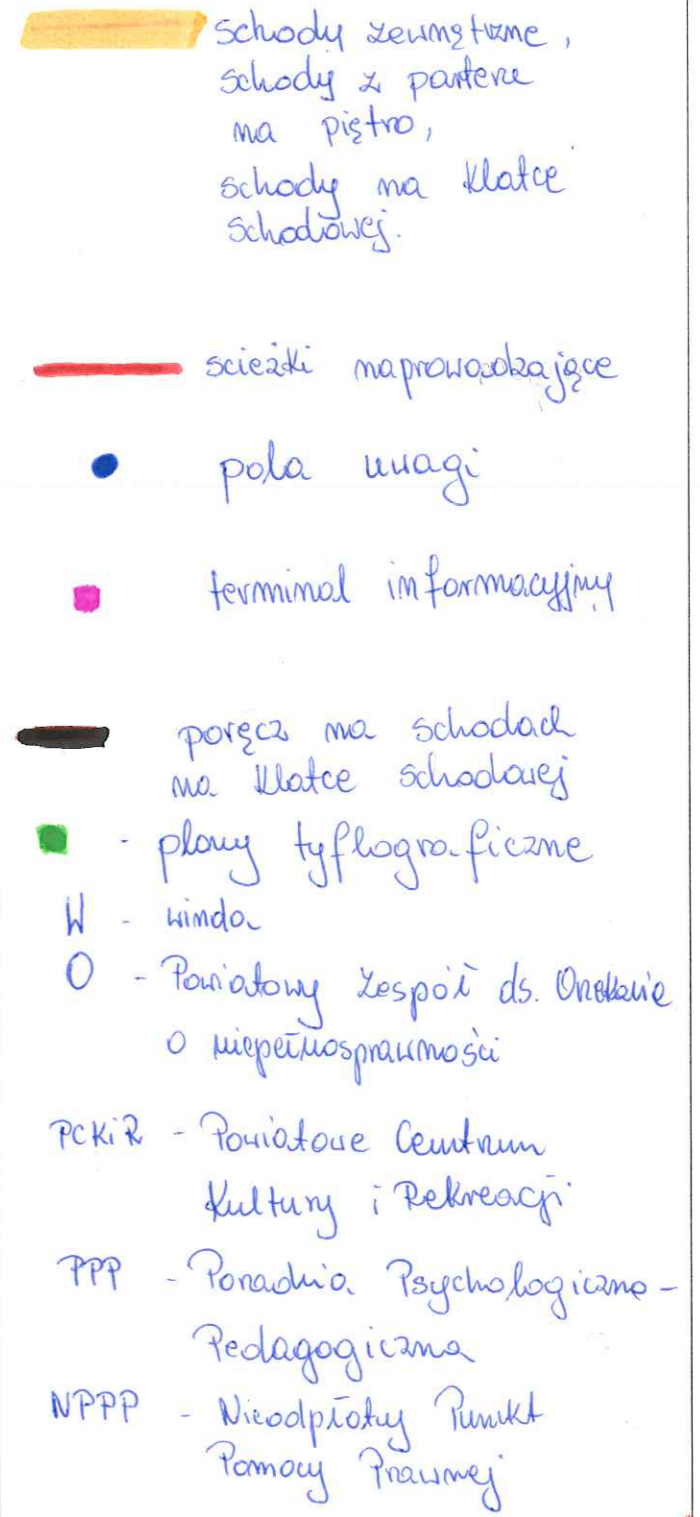 schody zewnętrzne,
schody z parteru
na piętro,
schody na klatce
schodowej.
scieżki naprowadzające
pola uwagi
terminal informacyjny
poręcz na schodach
na klatce schodowej
- plany tyflograficzne
W - winda
O - Powiatowy Zespół ds. Orzekania
o niepełnosprawności
PCKiR - Powiatowe Centrum
Kultury i Rekreacji
PPP - Poradnia Psychologiczno-
Pedagogiczna
NPPP - Nieodpłatny Punkt
Pomocy Prawnej